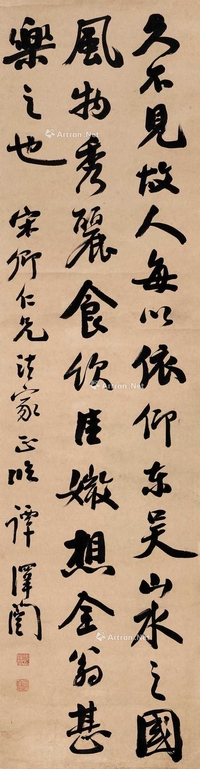 久不見故人每以依仰東吴山水之國
風物秀麗食飲佳嫩想全翁甚
樂之也
宋卿仁兄法家正临 譚澤闓